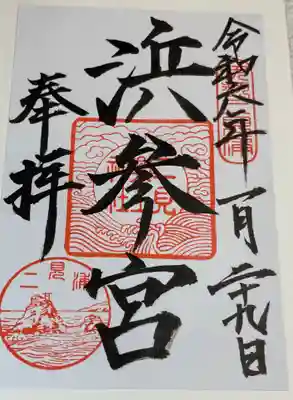 令和六年一月二十九日
浜参宮
奉拝
二見浦